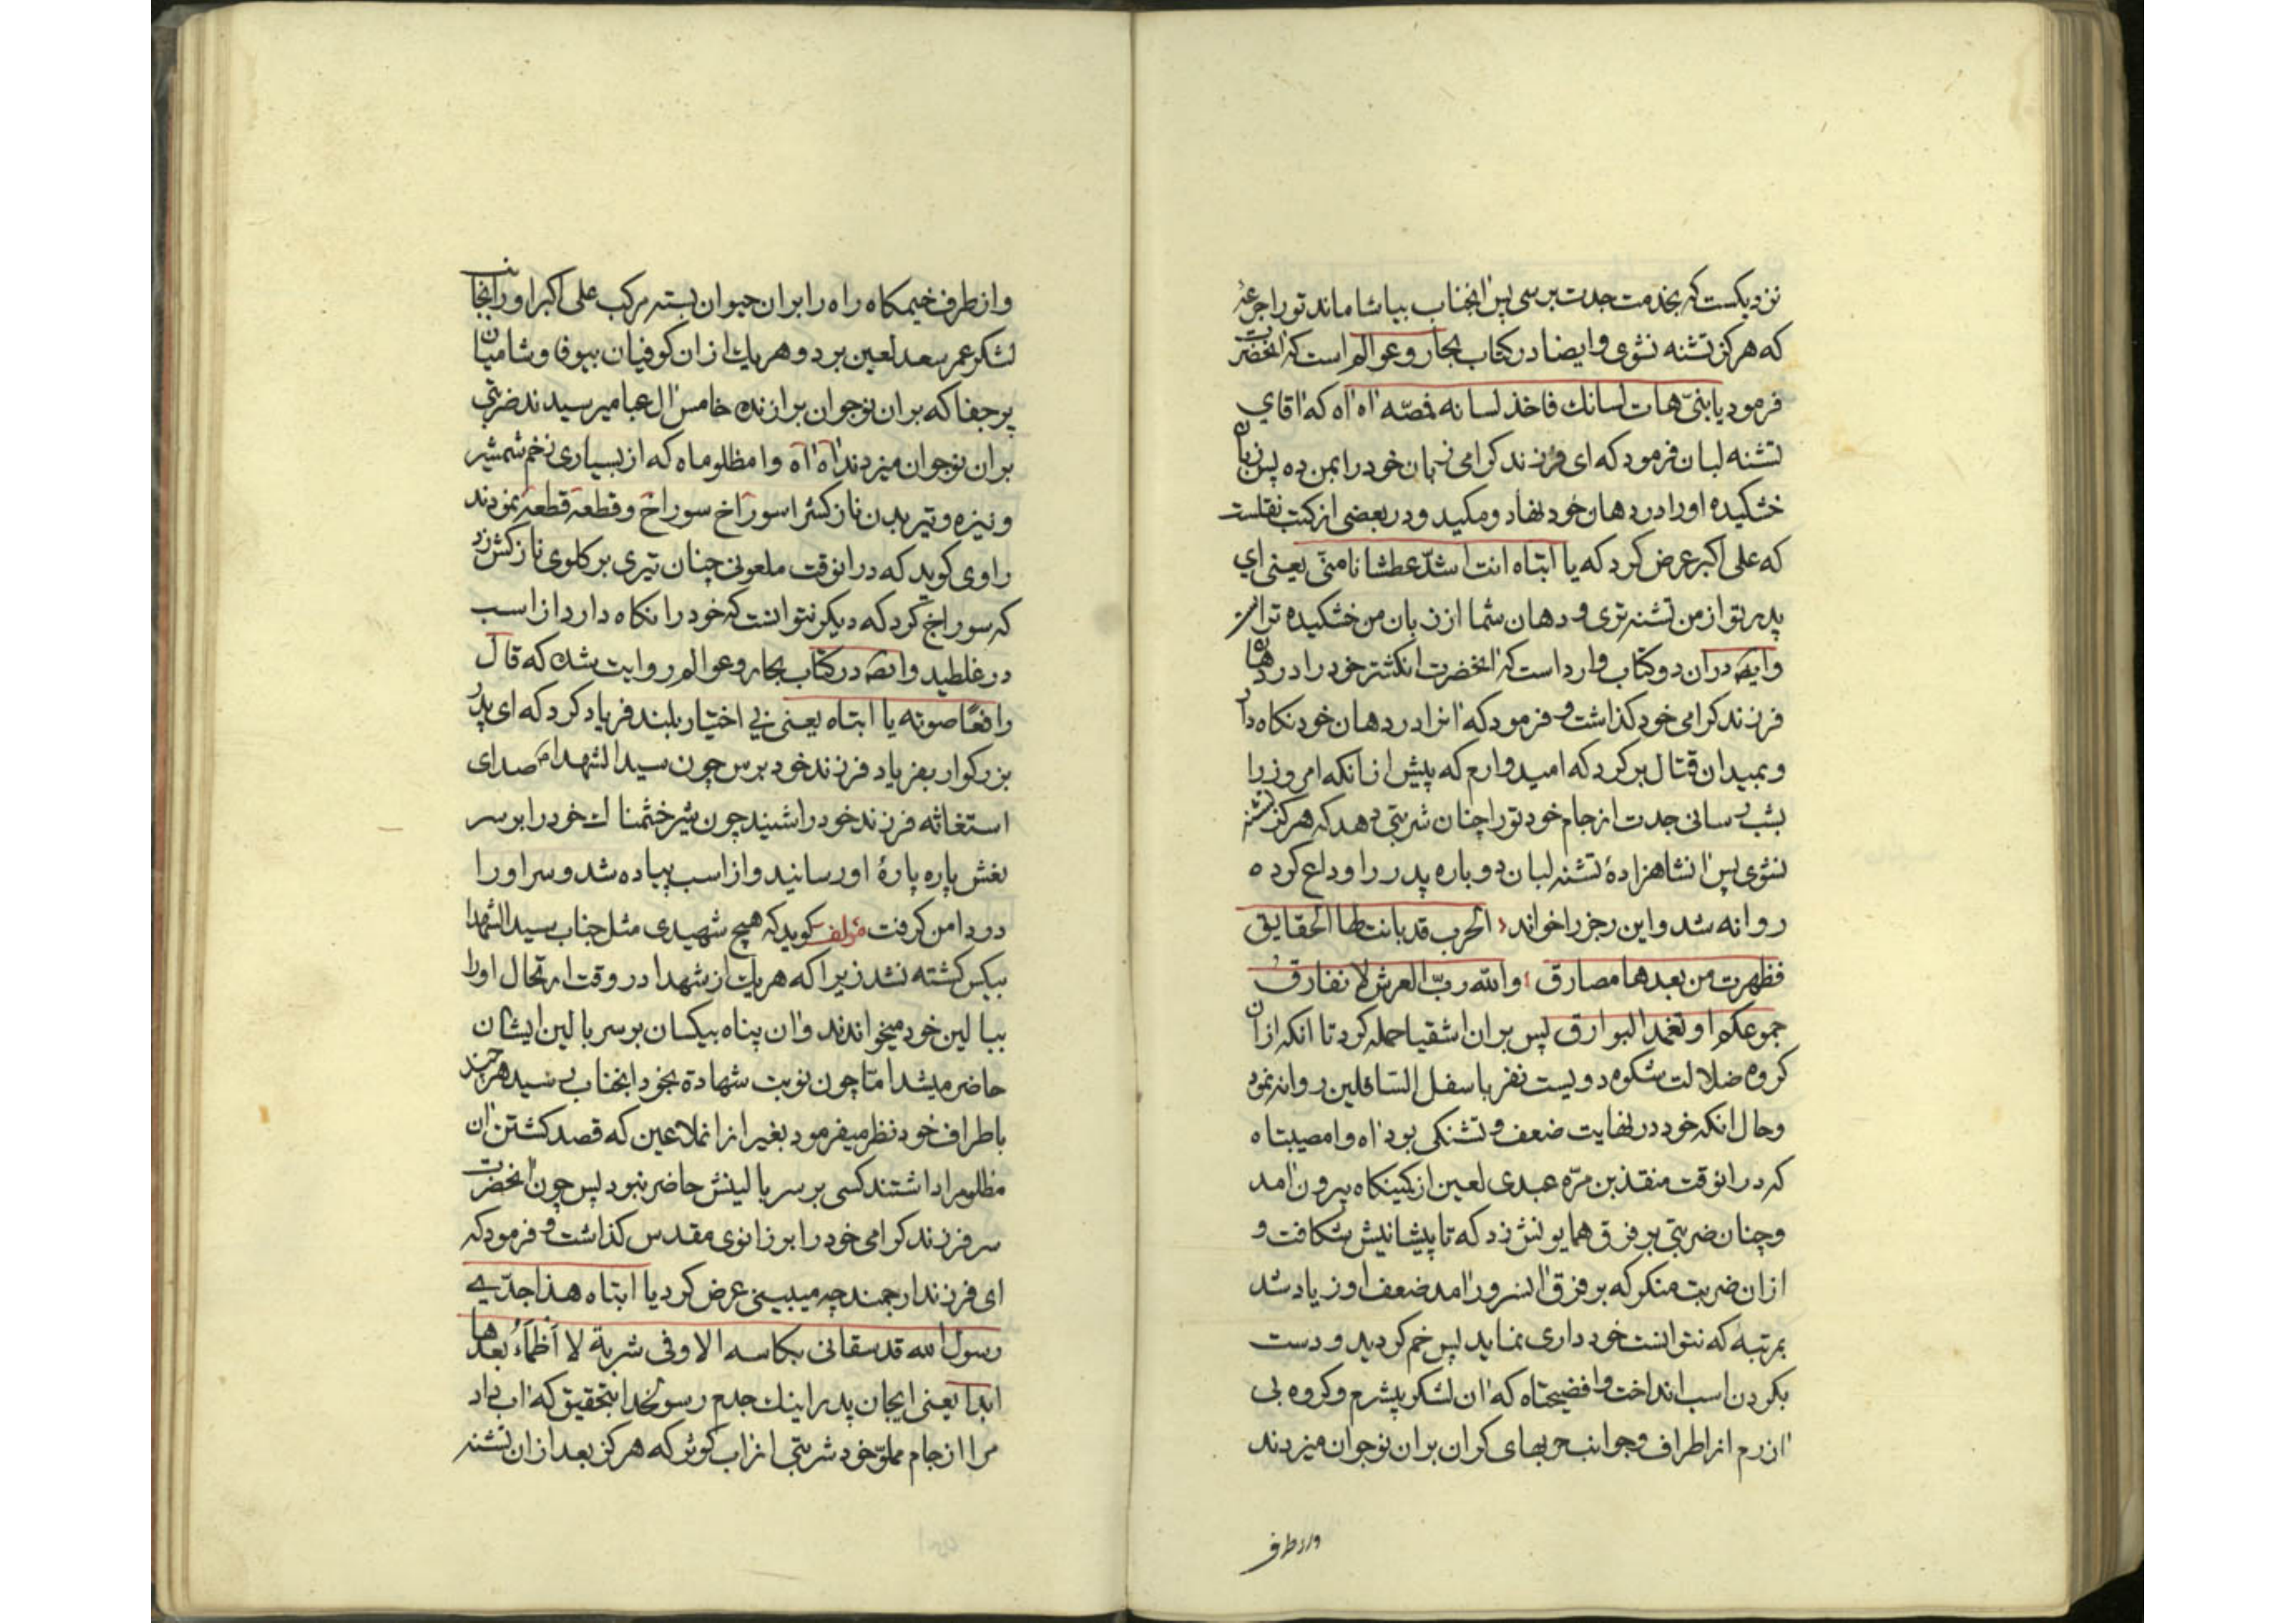 نزدیکست که بخدمت جدت برسی پس آنجناب بیاشاماند تو را جرعهٔ
که هرکز تشنه نشوی و ایضا در کتاب بحار و عوالم است که آنحضرت
فرمود یا بنیّ هات لسانك فاخذ لسانه فمصّه آه آه که آقای
تشنه لبان فرمود که ای فرزند کرامی زبان خود را بمن ده پس زبان
خشکیده او را در دهان خود نهاد و مکید و در بعضی از کتب نقلست
که علی اکبر عرض کرد که یا ابتاه انت اشدّ عطشانا منّی یعنی ای
پدر تو از من تشنه تری و دهان شما از زبان من خشکیده تر است
و ایضه در ان دو کتاب وارد است که آنحضرت انکشتر خود را در دهان
فرزند کرامی خود کذاشت و فرمود که آنرا در دهان خود نکاه دار
و بمیدان قتال برکرد که امیدوارم که پیش از انکه امروز را
بشب رسانی جدت از جام خود تو را چنان شربتی دهد که هرکز تشنه
نشوی پس آنشاهزادهٔ تشنه لبان دوباره پدر را وداع کرده
روانه شد و این رجز را خواند الحرب قد بانت لها الحقایق
فظهرت من بعدها مصارق والله ربّ العرش لا نفارق
جموعکم او تغمد البوارق پس بر ان اشقیا حمله کرد تا انکه از ان
کروه ضلالت شکوه دویست نفر باسفل السّافلین روانه نمود
و حال انکه خود در نهایت ضعف و تشنکی بود آه وا مصیبتاه
که در انوقت منقذ بن مرّه عبدی لعین از کمینکاه بیرون آمد
و چنان ضربتی بر فرق همایونش زد که تا پیشانیش شکافت و
از ان ضربت منکر که بر فرق آنسرور آمد ضعف او زیاد شد
بمرتبه که نتوانست خود داری نماید پس خم کردید و دست
بکردن اسب انداخت وا فضیحتاه که آن لشکر بیشرم و کروه بی
آزرم از اطراف و جوانب حربهای کران بر ان نوجوان میزدند
و از طرف
و از طرف خیمکاه راه را بر ان جیوان بسته مرکب علی اکبر او را بجانب
لشکر عمر سعد لعین برد و هر یك از ان کوفیان بیوفا و شامیان
پر جفا که بر ان نوجوان برازنده خامس آل عبا میرسیدند ضربتی
بر ان نوجوان میزدند آه آه وا مظلوماه که از بسیاری زخم شمشیر
و نیزه و تیر بدن نازکش را سوراخ سوراخ و قطعه قطعه نمودند
راوی کوید که در انوقت ملعونی چنان تیری بر کلوی نازکش زد
که سوراخ کرد که دیکر نتوانست که خود را نکاه دارد از اسب
در غلطید و ایضه در کتاب بحار و عوالم روایت شده که قال
رافعًا صوته یا ابتاه یعنی بی اختیار بلند فریاد کرد که ای پدر
بزرکوار بفریاد فرزند خود برس چون سید الشهدا صدای
استغاثه فرزند خود را شنید چون شیر خشمناك خود را بر سر
نعش پاره پارهٔ او رسانید و از اسب پیاده شد و سر او را
در دامن کرفت مؤلف کوید که هیچ شهیدی مثل جناب سید الشهدا
بیکس کشته نشد زیرا که هر یك از شهدا در وقت ارتحال او را
ببالین خود میخواندند و آن پناه بیکسان بر سر بالین ایشان
حاضر میشد امّا چون نوبت شهادة بخود آنجناب رسید هر چند
باطراف خود نظر میفرمود بغیر از انملاعین که قصد کشتن آن
مظلومرا داشتند کسی بر سر بالینش حاضر نبود پس چون آنحضرت
سر فرزند کرامی خود را بر زانوی مقدس کذاشت و فرمود که
ای فرزند ارجمند چه میبینی عرض کرد یا ابتاه هذا جدّی
رسول الله قد سقانی بکاسه الاوفی شربة لا أظمأ بعدها
ابدا یعنی ایجان پدر اینك جدم رسولخدا بتحقیق که آب داد
مرا از جام مملوّ خود شربتی از آب کوثر که هرکز بعد از ان تشنه